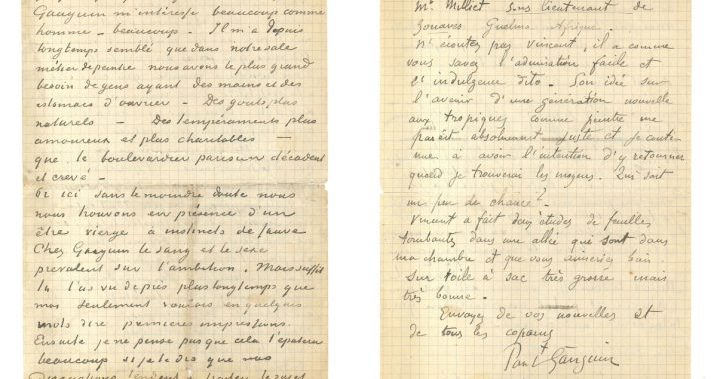 Gauguin m'intéresse beaucoup comme
homme – beaucoup – Il m'a depuis
longtemps semblé que dans notre sale
métier de peintre nous avons le plus grand
besoin de gens ayant des mains et des
estomacs d'ouvrier – Des gouts plus
naturels – Des tempéraments plus
amoureux et plus charitables –
que le boulevardier parisien décadent
et crevé –
Or ici sans le moindre doute nous
nous trouvons en présence d'un
être vierge à instincts de sauvage
Chez Gauguin le sang et le sexe
prévalent sur l'ambition. Mais suffit
tu l'as vu de près plus longtemps que
moi seulement voulais en quelques
mots dire premières impressions.
Ensuite je ne pense pas que cela t'épatera
beaucoup si je te dis que nos
discussions tendent à traiter le sujet
Mr Milliet sous lieutenant de
Zouaves Guelma Afrique
N'écoutez pas Vincent, il a comme
vous savez l'admiration facile et
l'indulgence dito – Son idée sur
l'avenir d'une génération nouvelle
aux tropiques comme peintre me
paraît absolument juste et je conti
nue à avoir l'intention d'y retourner
quand je trouverai les moyens. Qui sait
un peu de chance?
Vincent a fait deux études de feuilles
tombantes dans une allée qui sont dans
ma chambre et que vous aimeriez bien
sur toile à sac très grosse mais
très bonne –
Envoyez de vos nouvelles et
de tous les copains
Paul Gauguin